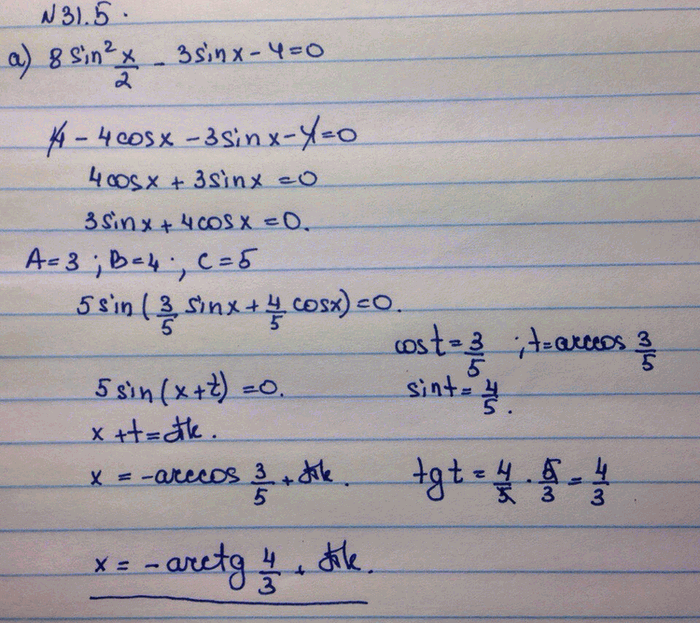 N31.5.
a) 8 sin² x/2 - 3sinx - 4 = 0
4 - 4cosx - 3sinx - 4 = 0
4cosx + 3sinx = 0
3sinx + 4cosx = 0.
A=3 ; B=4 ; C=5
5sin(3/5 sinx + 4/5 cosx) = 0.
cost = 3/5 ; t = arccos 3/5
5sin(x+t) = 0. sint = 4/5.
x + t = πk.
x = -arccos 3/5 + πk. tgt = 4/5 · 5/3 = 4/3
x = -arctg 4/3 + πk.